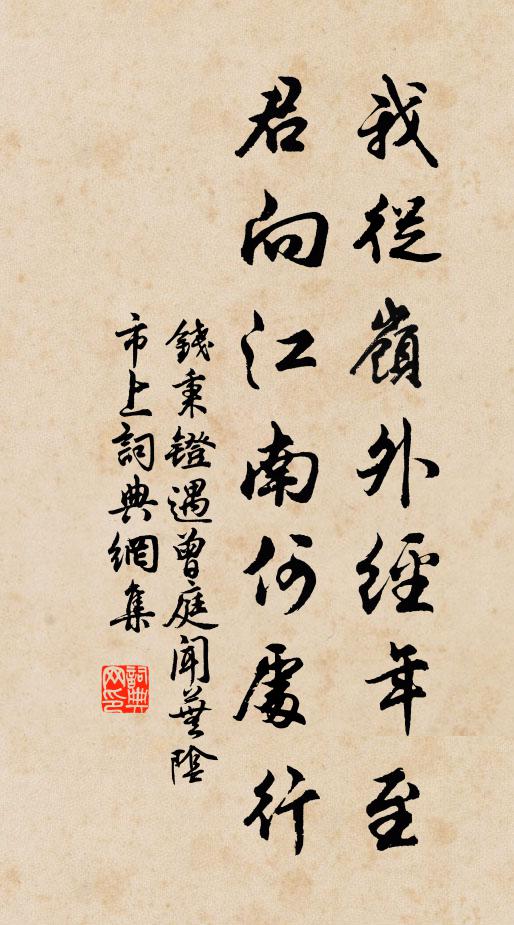 我從嶺外經年至
君向江南何處行
錢秉鐙遇曾庭聞蕪陰
市上詞典網集
詞典
网印